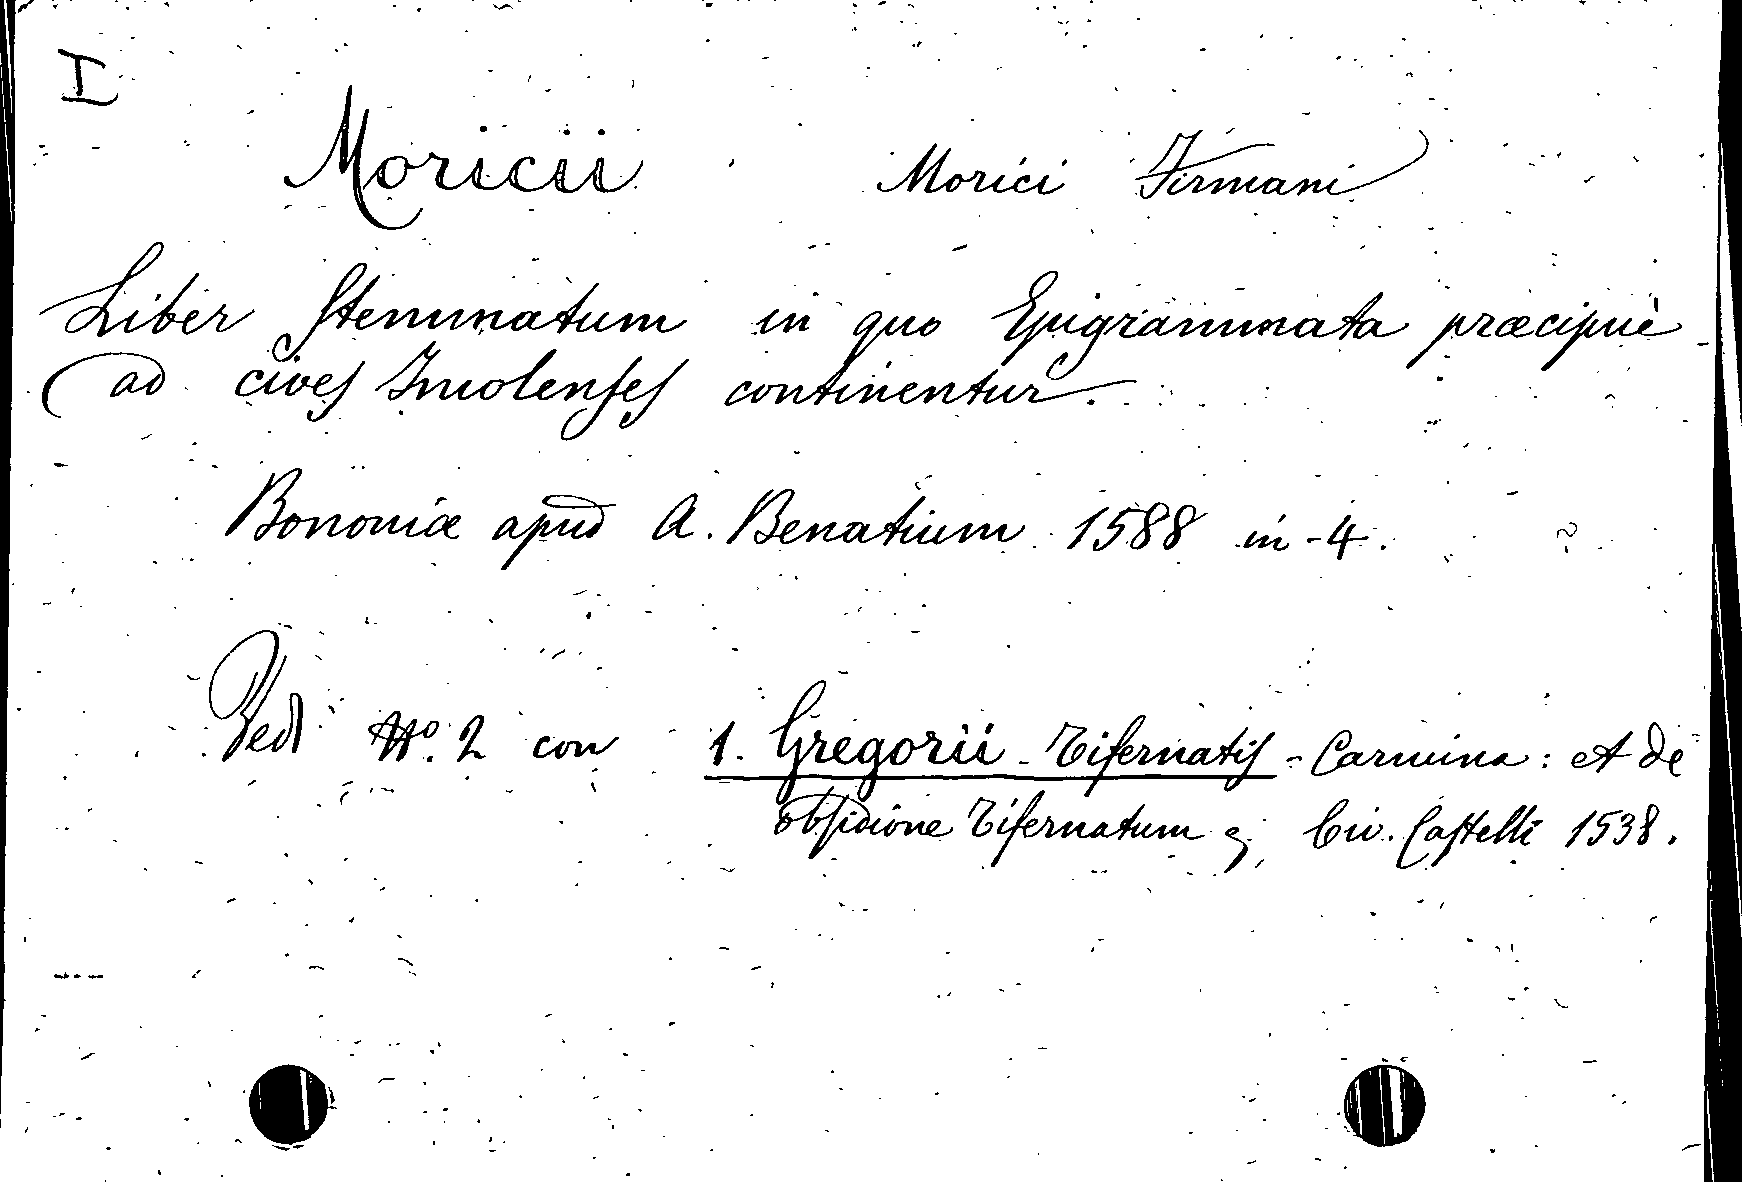 I
Moricii Morici Firmani
Liber Stemmatum in quo Epigrammata præcipuè
ad cives Imolenses continentur.
Bononiæ apud A. Benatium 1588 in-4.
Vedi N.º 2 con 1. Gregorii - Tifernatis - Carmina: et de
obsidione Tifernatum &, Civ. Castelli 1538.